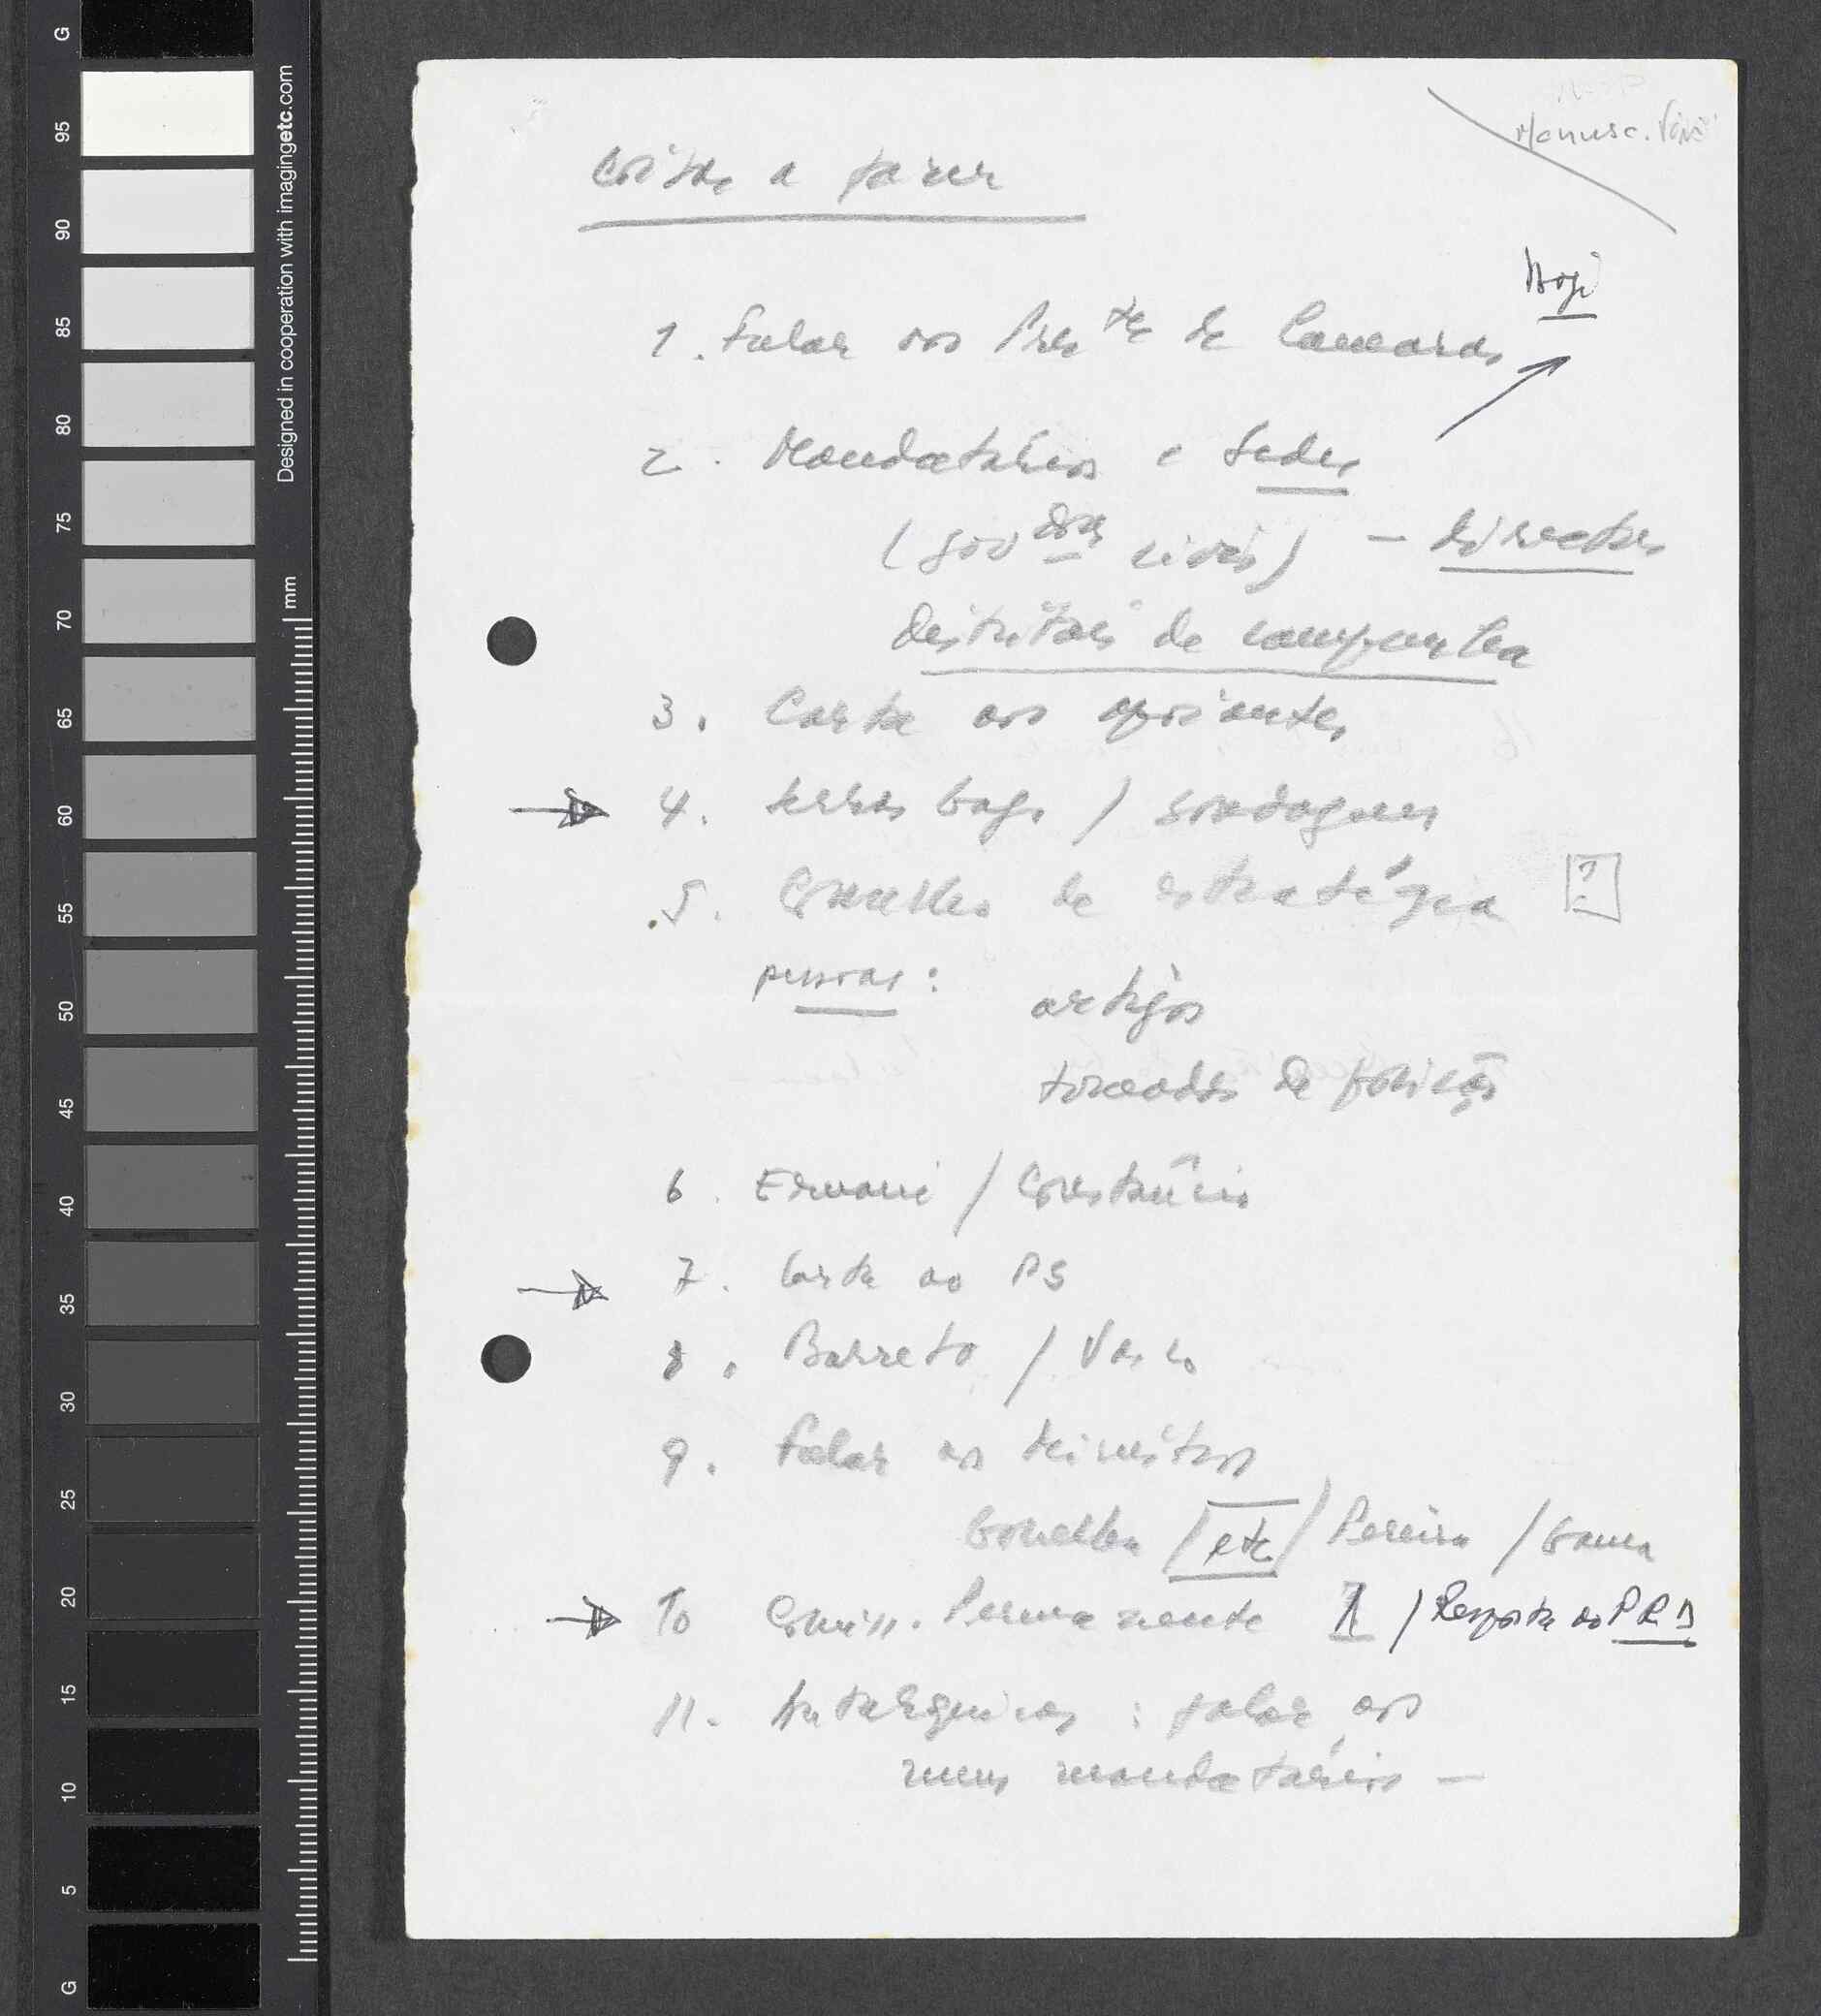 Manusc.
Coisas a fazer
Hoje
1. Falar aos Pres tes de Camaras
2. Mandatários e Sedes
(gov dores civis) - directores
distritais de campanha
3. Carta aos apoiantes
4. / sondagens
5. Conselho de estratégia ?
pessoas:
artigos
tomadas de posição
6. Ernani / Constâncio
7. Carta ao PS
8. Barreto / Vasco
9. Falar aos ministros
Gonelha / etc / Pereira / Gama
10 Comiss. Permanente 1 / Resposta ao PRD
11. : falar aos
meus mandatários -
Designed in cooperation with imagingetc.com
mm
G
95
90
85
80
75
70
65
60
55
50
45
40
35
30
25
20
15
10
5
G